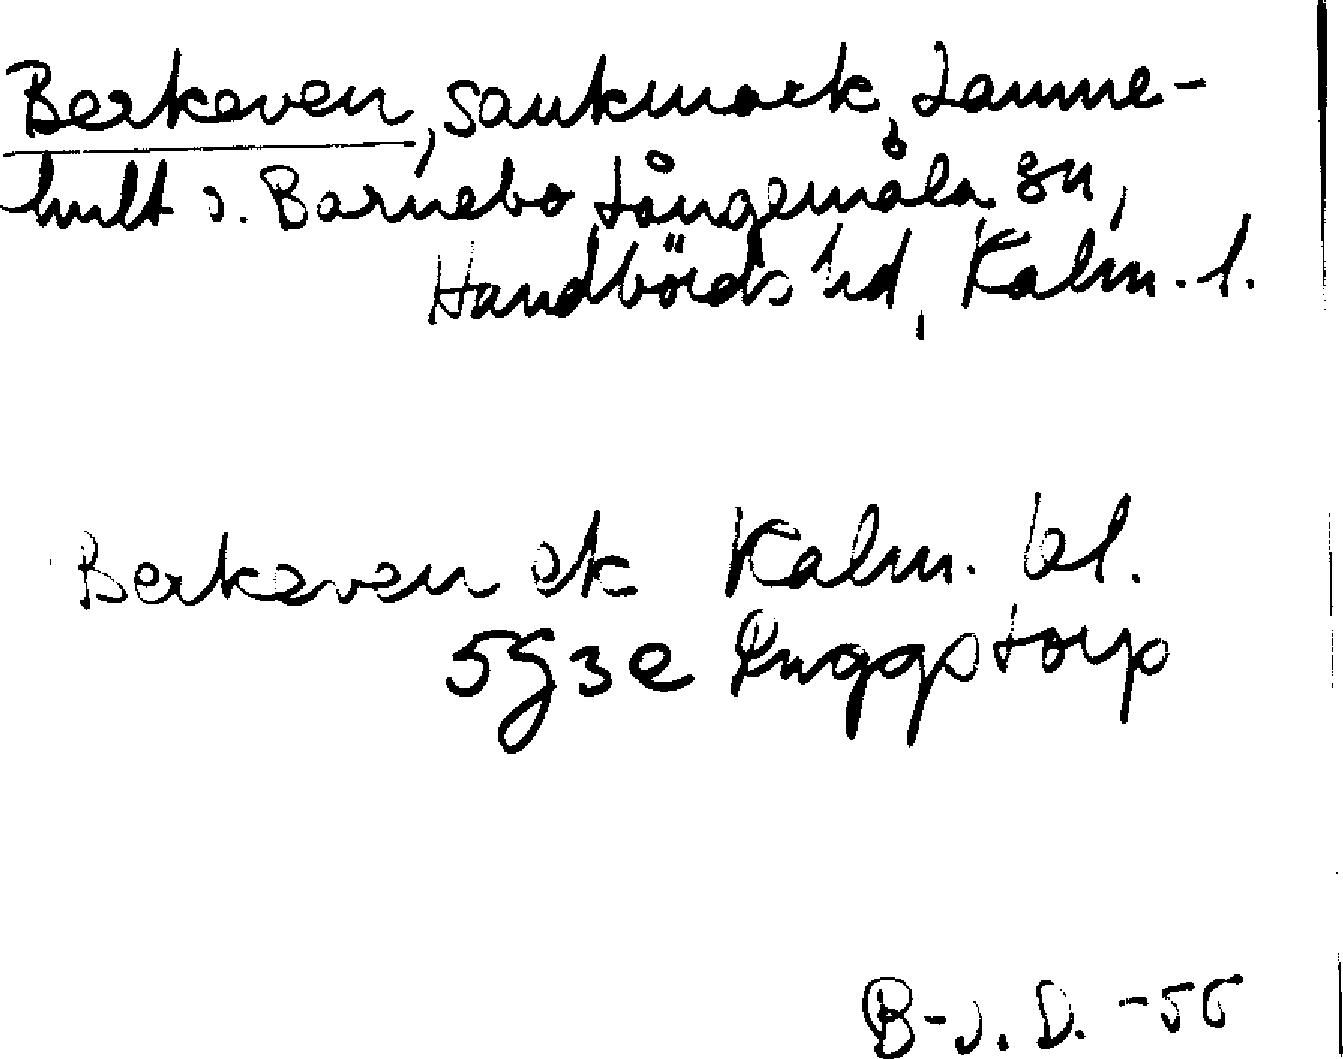 Berkeven, sankmark, Lamme-
hult s. Barnebo Långemåla sn,
Handbörds hd, Kalm. l.
Berkeven ek Kalm. bl.
5G3e Ruggstorp
B-J. D. -55